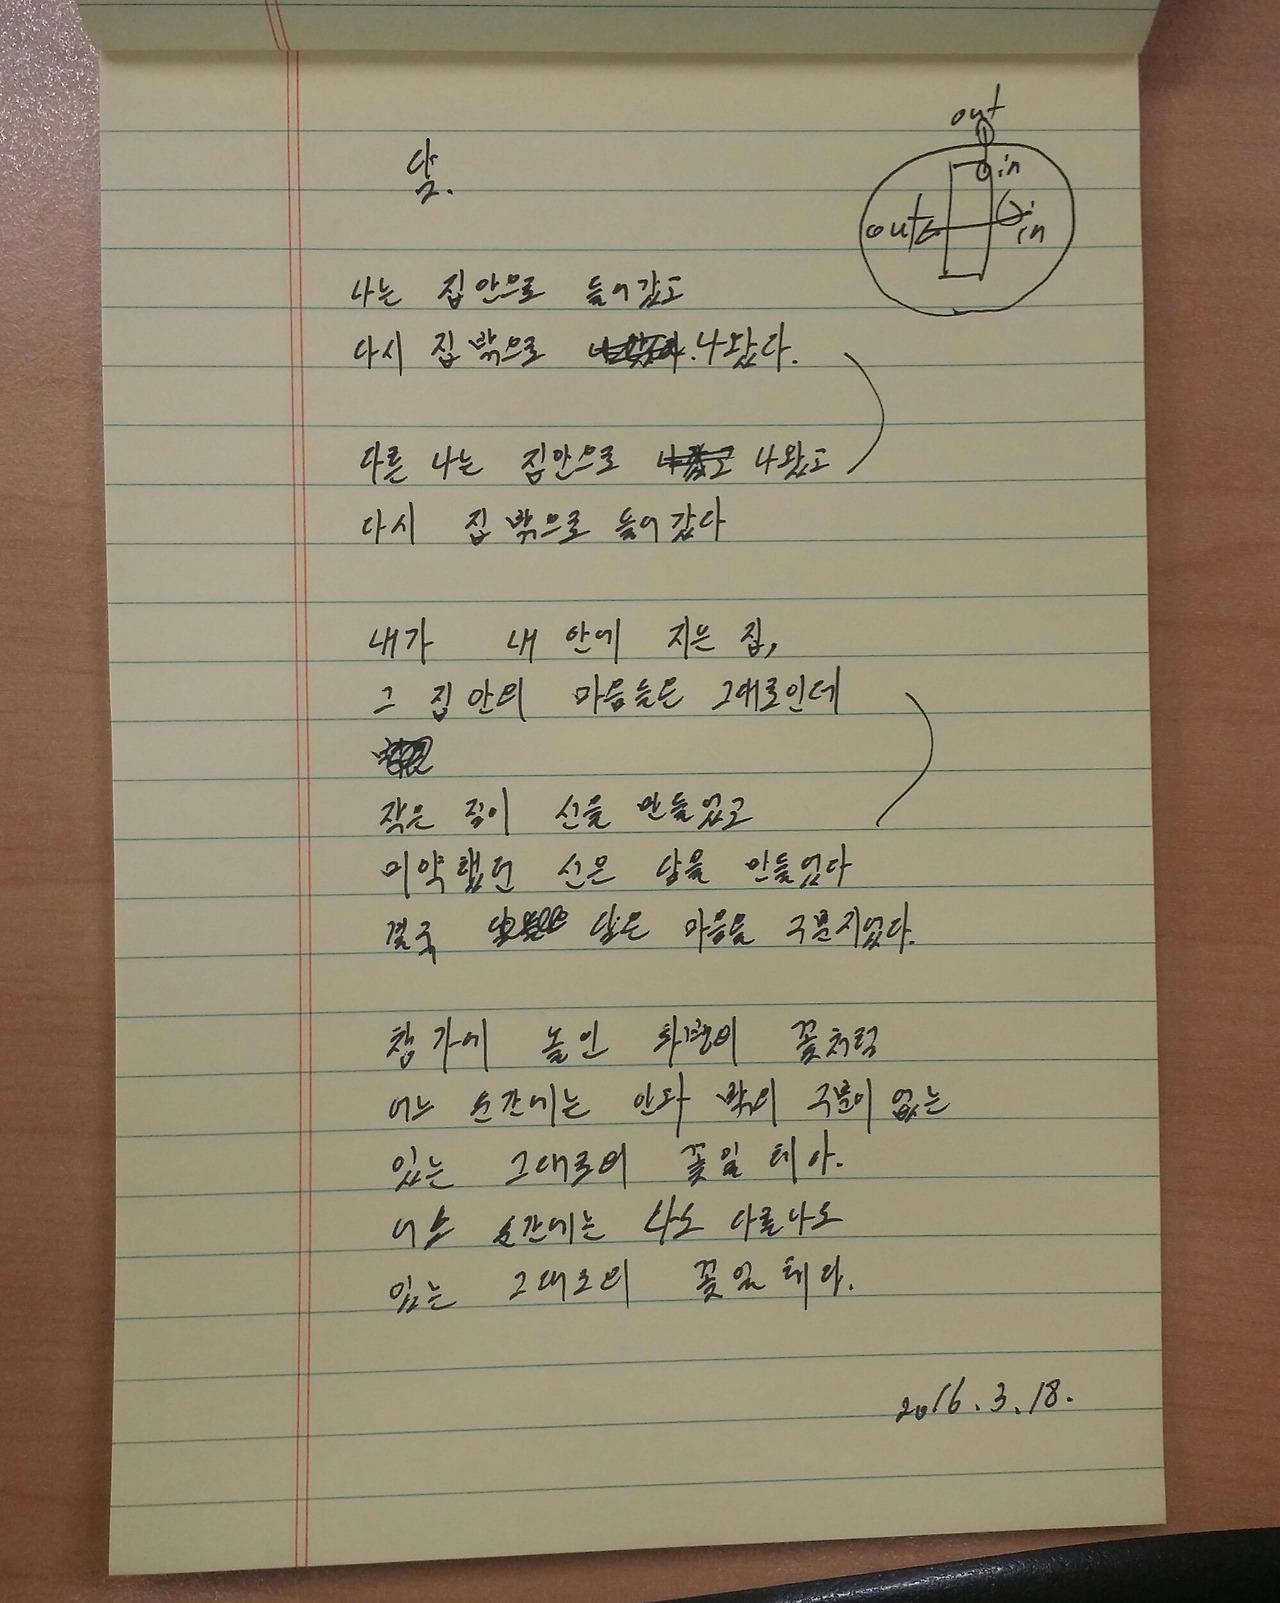 out
in
out
in
담.
나는 집안으로 들어갔고
다시 집밖으로 나왔다.
다른 나는 집안으로 나왔고
다시 집밖으로 들어갔다
내가 내 안에 지은 집,
그 집안의 마음들은 그대로인데
작은 집이 선을 만들었고
미약했던 선은 담을 만들었다
결국 담은 마음을 구분지었다.
창가에 놓인 화병의 꽃처럼
어느 순간에는 안과 밖의 구분이 없는
있는 그대로의 꽃일 테다.
어느 순간에는 나도 다른나도
있는 그대로의 꽃일 테다.
2016.3.18.